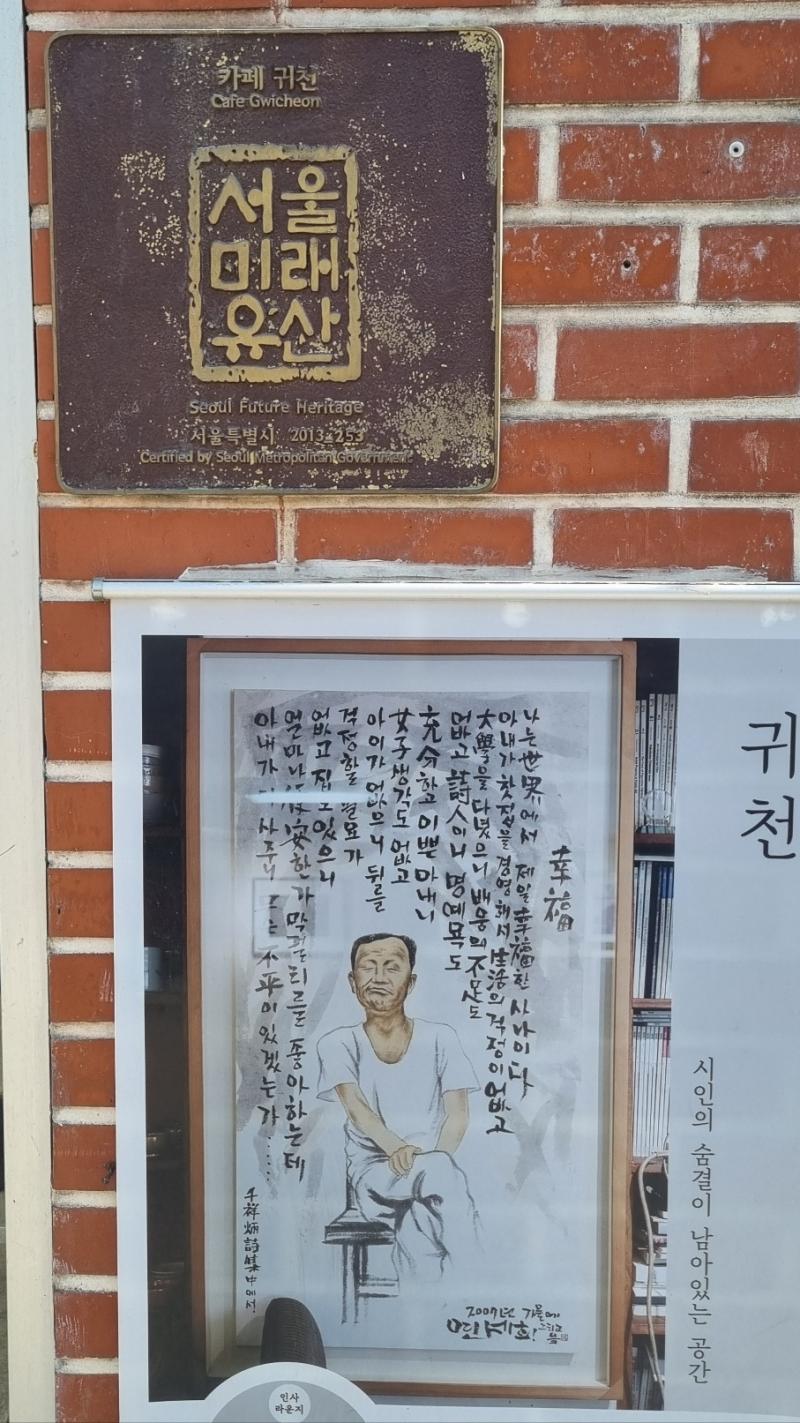 카페 귀천
Cafe Gwicheon
서울
미래
유산
Seoul Future Heritage
서울특별시 2013-253
Certified by Seoul Metropolitan Government
幸福
나는 世界에서 제일 幸福한 사나이다
아내가 찻집을 경영해서 生活의 걱정이 없고
大學을 다녔으니 배움의 不足도
없고 詩人이니 명예욕도
充分하고 이쁜 아내니
女子 생각도 없고
아이가 없으니 뒤를
걱정할 필요가
없고 집도 있으니
얼마나 便安한가 막걸리를 좋아하는데
아내가 다 사주니 不平이 있겠는가.....
千祥炳 詩集 中에서!
2007년 가을에
그리고
씀
귀천
시인의 숨결이 남아있는 공간
인사
라운지